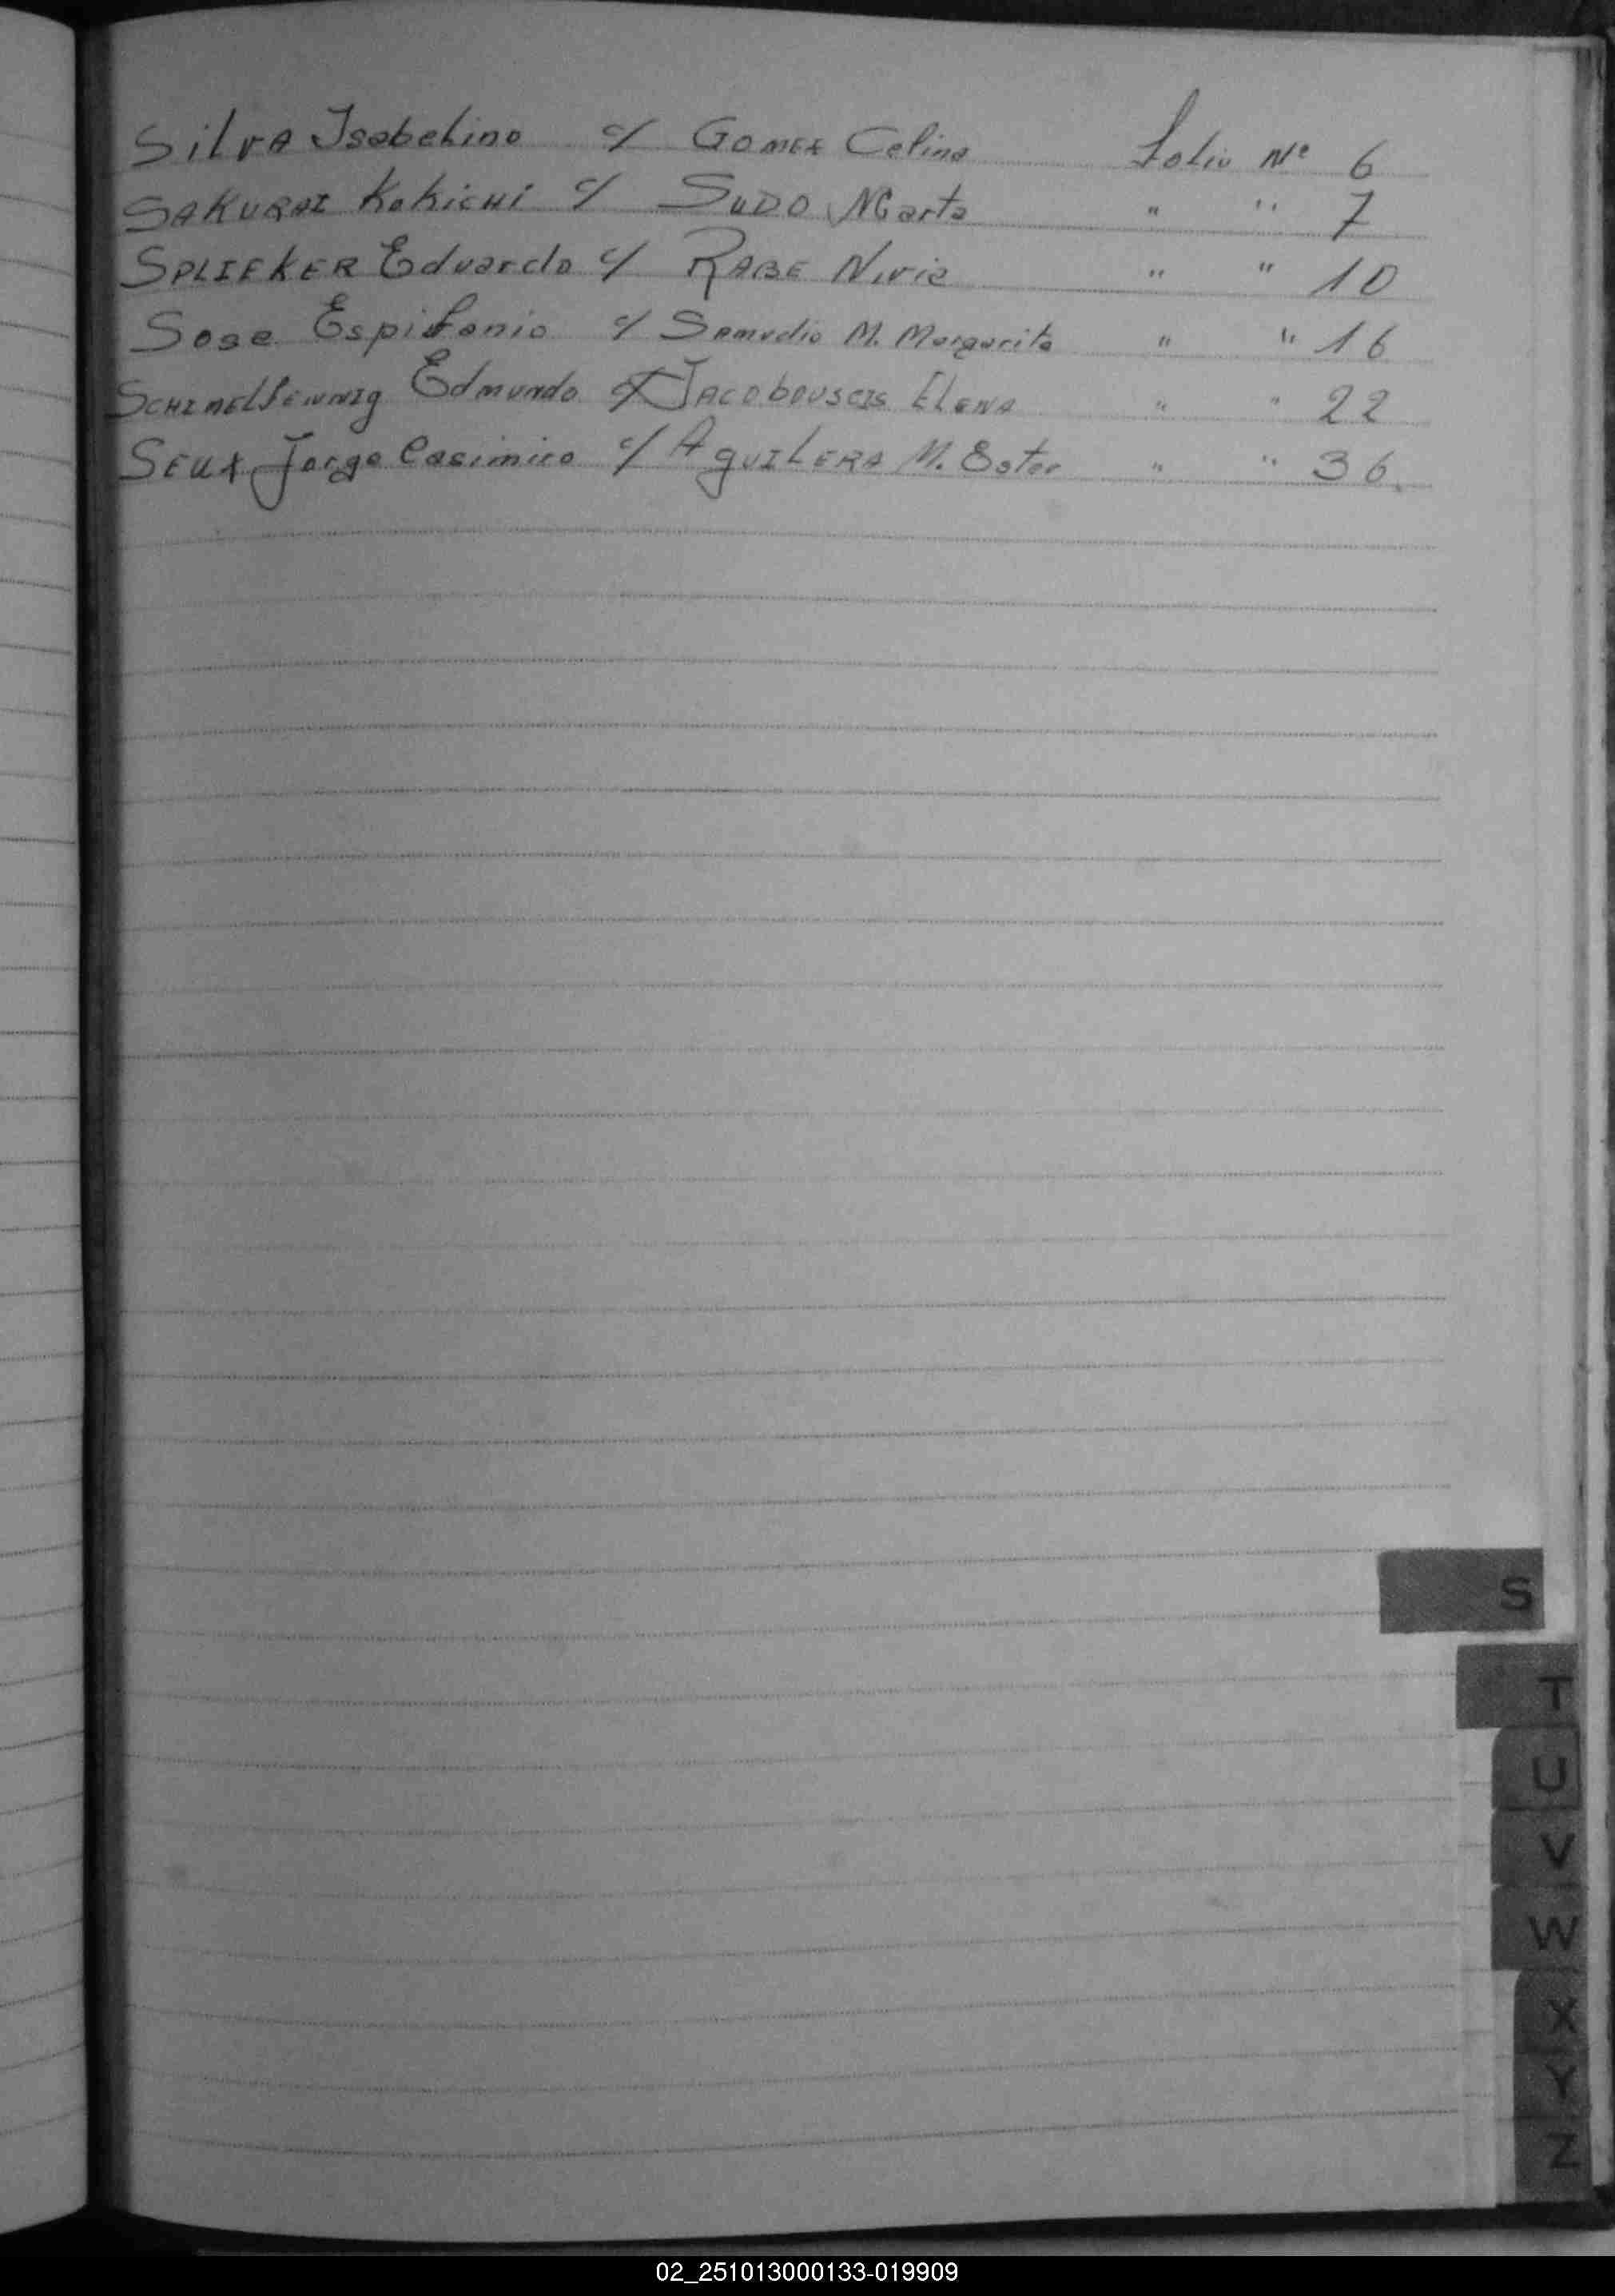 Silva Isabelino c/ Gomez Celina Folio Nº 6
SAKURAI KoKicHi c/ SUDO Marta " " 7
SPLIEKER Eduardo c/ RABE Nivia " " 10
Sosa Espifanio c/ Samudio M. Margarita " " 16
SCHIMELFENNIg Edmundo c/ JACObOUSCIS ELENA " " 22
SEUX Jorge Casimiro c/ AgUILERA M. Ester " " 36.
S
T
U
V
W
X
Y
Z
02_251013000133-019909